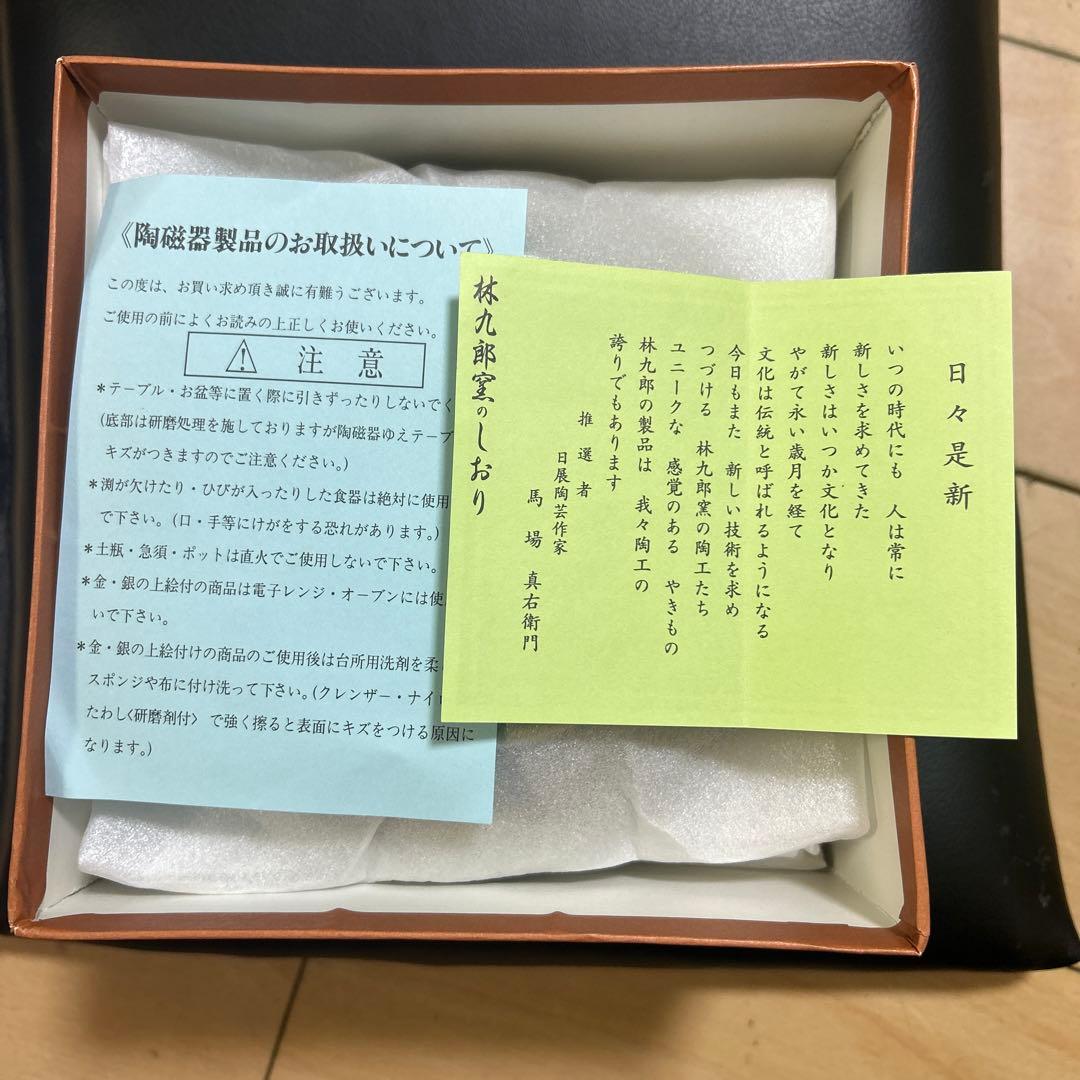 《陶磁器製品のお取扱いについて》
この度は、お買い求め頂き誠に有難うございます。
ご使用の前によくお読みの上正しくお使いください。
注意
*テーブル・お盆等に置く際に引きずったりしないでく
(底部は研磨処理を施しておりますが陶磁器ゆえテーブ
キズがつきますのでご注意ください。)
*渕が欠けたり・ひびが入ったりした食器は絶対に使用
で下さい。(口・手等にけがをする恐れがあります。)
*土瓶・急須・ポットは直火でご使用しないで下さい。
*金・銀の上絵付の商品は電子レンジ・オーブンには使
いで下さい。
*金・銀の上絵付けの商品のご使用後は台所用洗剤を柔
スポンジや布に付け洗って下さい。(クレンザー・ナイ
たわし〈研磨剤付〉 で強く擦ると表面にキズをつける原因に
なります。)
日々是新
いつの時代にも 人は常に
新しさを求めてきた
新しさはいつか文化となり
やがて永い歳月を経て
文化は伝統と呼ばれるようになる
今日もまた 新しい技術を求め
つづける 林九郎窯の陶工たち
ユニークな 感覚のある やきもの
林九郎の製品は 我々陶工の
誇りでもあります
推選者
日展陶芸作家
馬場 真右衛門
林九郎窯のしおり